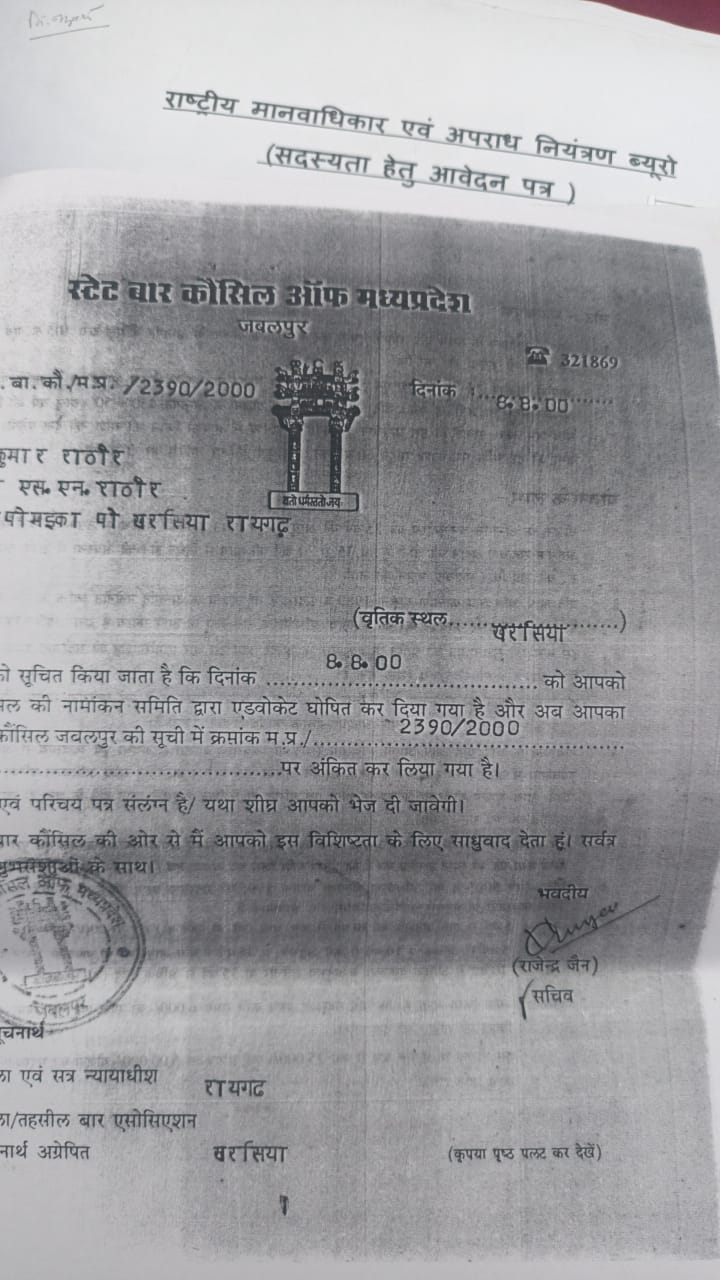 राष्ट्रीय मानवाधिकार एवं अपराध नियंत्रण ब्यूरो
(सदस्यता हेतु आवेदन पत्र )
स्टेट बार कौंसिल ऑफ मध्यप्रदेश
जबलपुर
☎ 321869
. बा.कौ./म.प्र. /2390/2000
दिनांक : 8.8.00
कुमार राठौर
एस.एन.राठौर
यतो धर्मस्ततो जय
पो खरसिया रायगढ़
(वृतिक स्थल......खरसिया........)
को सूचित किया जाता है कि दिनांक ....8.8.00.... को आपको
की नामांकन समिति द्वारा एडवोकेट घोषित कर दिया गया है और अब आपका
कौंसिल जबलपुर की सूची में क्रमांक म.प्र./....2390/2000....
....पर अंकित कर लिया गया है।
एवं परिचय पत्र संलंग्न है/ यथा शीघ्र आपको भेज दी जावेगी।
बार कौंसिल की ओर से मैं आपको इस विशिष्टता के लिए साधुवाद देता हूं। सर्वत्र
के साथ।
भवदीय
(राजेन्द्र जैन)
सचिव
कौंसिल ऑफ मध्यप्रदेश
जबलपुर
सूचनार्थ
एवं सत्र न्यायाधीश रायगढ
/तहसील बार एसोसिएशन
नार्थ अग्रेषित खरसिया
(कृपया पृष्ठ पलट कर देखें)